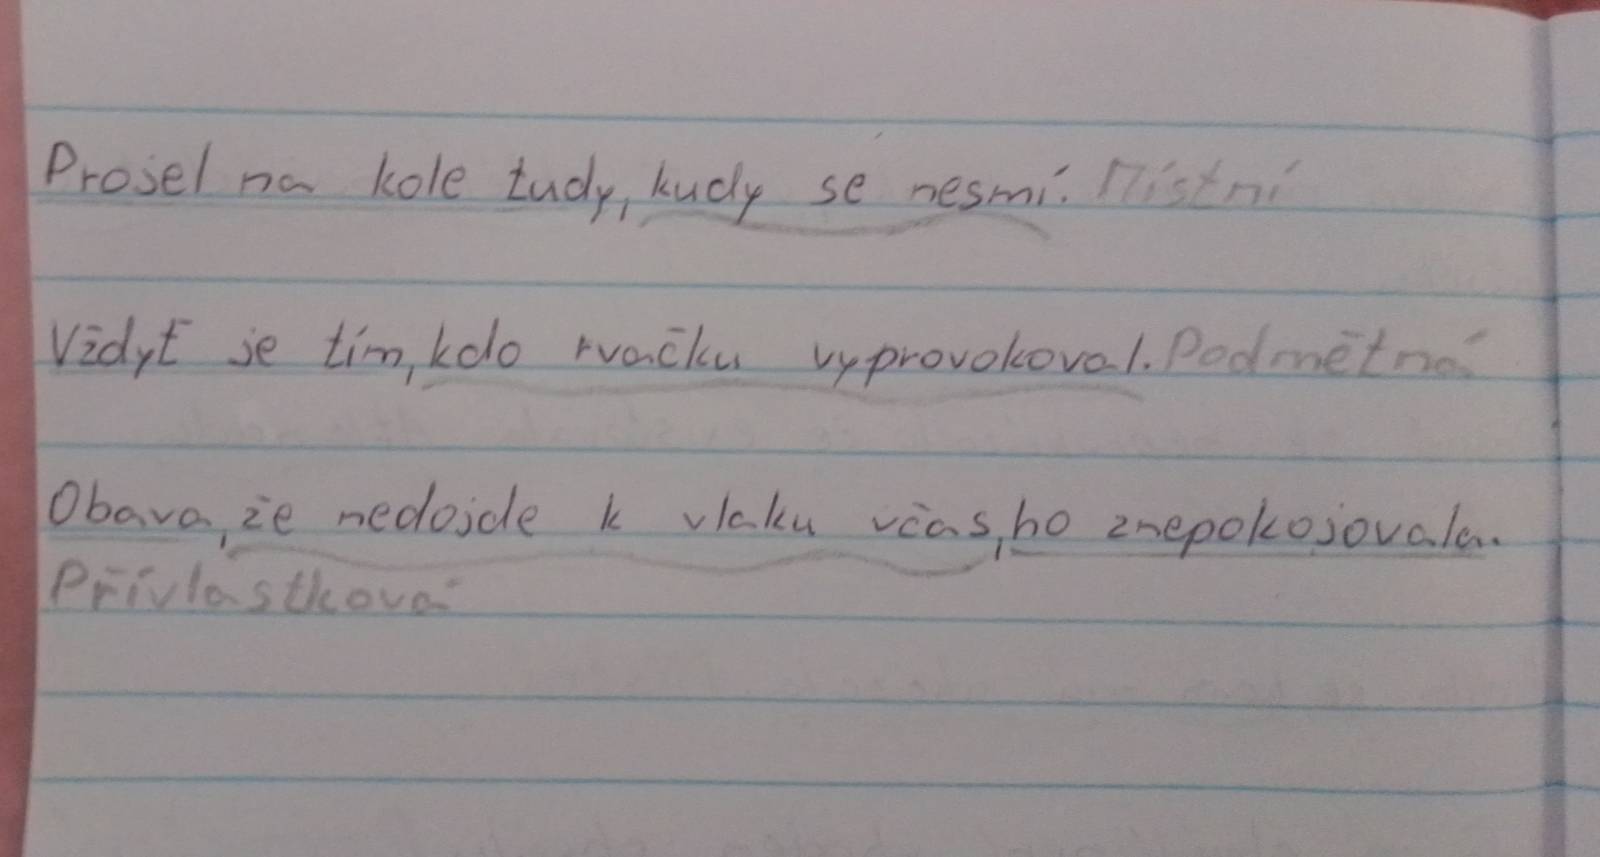 Projel na kole tudy, kudy se nesmí. Místní
Vždyť je tím, kdo rvačku vyprovokoval. Podmětná
Obava, že nedojde k vlaku včas, ho znepokojovala.
Přívlastková